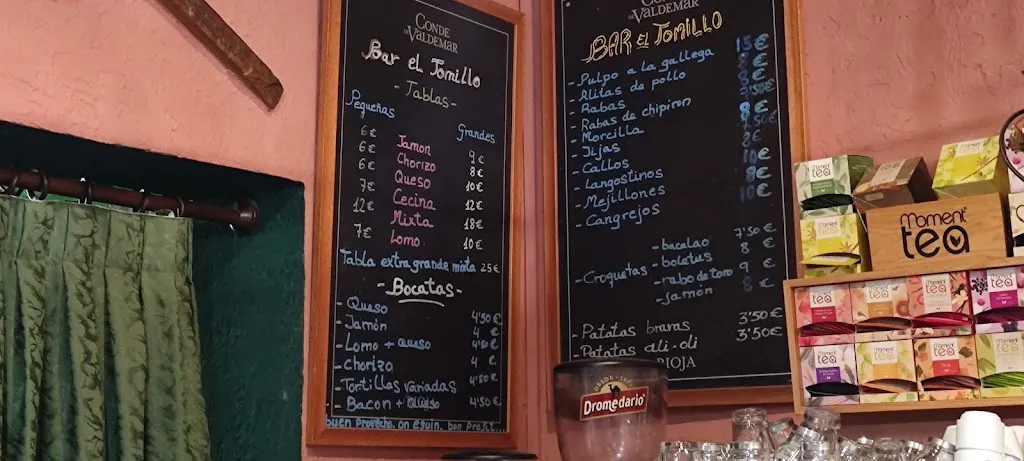 CONDE
DE VALDEMAR
Bar el Tomillo
- Tablas -
Pequeñas Grandes
6€ Jamon 9€
6€ Chorizo 8€
6€ Queso 10€
7€ Cecina 12€
12€ Mixta 18€
7€ Lomo 10€
Tabla extra grande mixta 25€
- Bocatas -
- Queso 4'50€
- Jamón 4€
- Lomo + queso
- Chorizo 4€
- Tortillas variadas 4'50€
- Bacon + Queso 4'50€
buen provecho, on eguin, bon
CONDE
DE VALDEMAR
BAR EL TOMILLO
- Pulpo a la gallega 15€
- Alitas de pollo
- Rabas
- Rabas de chipiron
- Morcilla
- Jijas
- Callos
- Langostinos
- Mejillones
- Cangrejos
- Croquetas
- bacalao 7'50€
- boletus 8€
- rabo de toro 9€
- jamón 8€
- Patatas bravas 3'50€
- Patatas ali-oli 3'50€
RIOJA
Dromedario
moment
tea
moment
tea
moment
tea
moment
tea
moment
tea
moment
tea
moment
tea
moment
tea
moment
tea
moment
tea
moment
tea
moment
tea
moment
tea